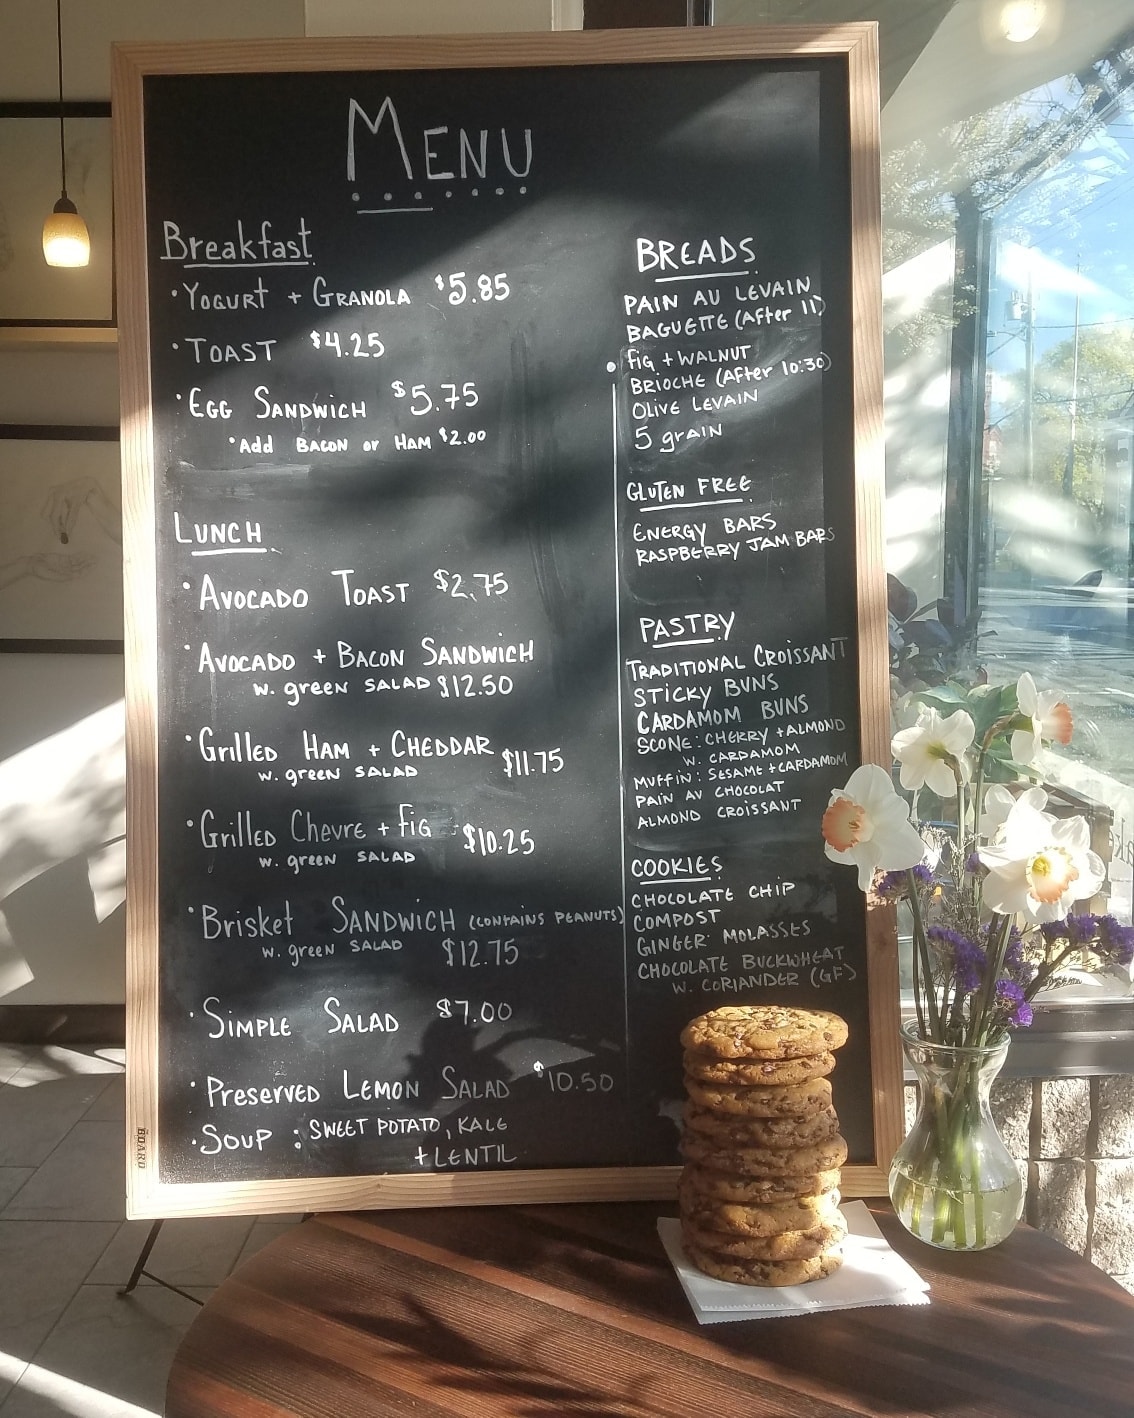 MENU
Breakfast
• YOGURT + GRANOLA $5.85
• TOAST $4.25
• EGG SANDWICH $5.75
• Add BACON or HAM $2.00
LUNCH
• AVOCADO TOAST $2.75
• AVOCADO + BACON SANDWICH
w. green SALAD $12.50
• Grilled HAM + CHEDDAR $11.75
w. green SALAD
• Grilled Chevre + fig $10.25
w. green SALAD
• Brisket SANDWICH (CONTAINS PEANUTS)
w. green SALAD $12.75
• SIMPLE SALAD $7.00
• Preserved LEMON SALAD $10.50
• SOUP : SWEET POTATO, KALE
+ LENTIL
BREADS
PAIN AU LEVAIN
BAGUETTE (After 11)
• fig + WALNUT
BRIOCHE (After 10:30)
OLIVE LEVAIN
5 grain
GLUTEN FREE
ENERGY BARS
RASPBERRY JAM BARS
PASTRY
TRADITIONAL CROISSANT
STICKY BUNS
CARDAMOM BUNS
SCONE: CHERRY + ALMOND
W. CARDAMOM
MUFFIN: SESAME + CARDAMOM
PAIN AU CHOCOLAT
ALMOND CROISSANT
COOKIES
CHOCOLATE CHIP
COMPOST
GINGER MOLASSES
CHOCOLATE BUCKWHEAT
W. CORIANDER (GF)
BOARD